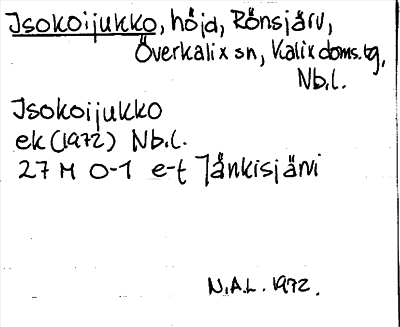 Isokoijukko, höjd, Rönsjärv,
Överkalix sn, Kalix doms.tg,
Nb.l.
Isokoijukko
ek (1972) Nb.l.
27 M 0-1 e-f Jänkisjärvi
N.A.L. 1972.